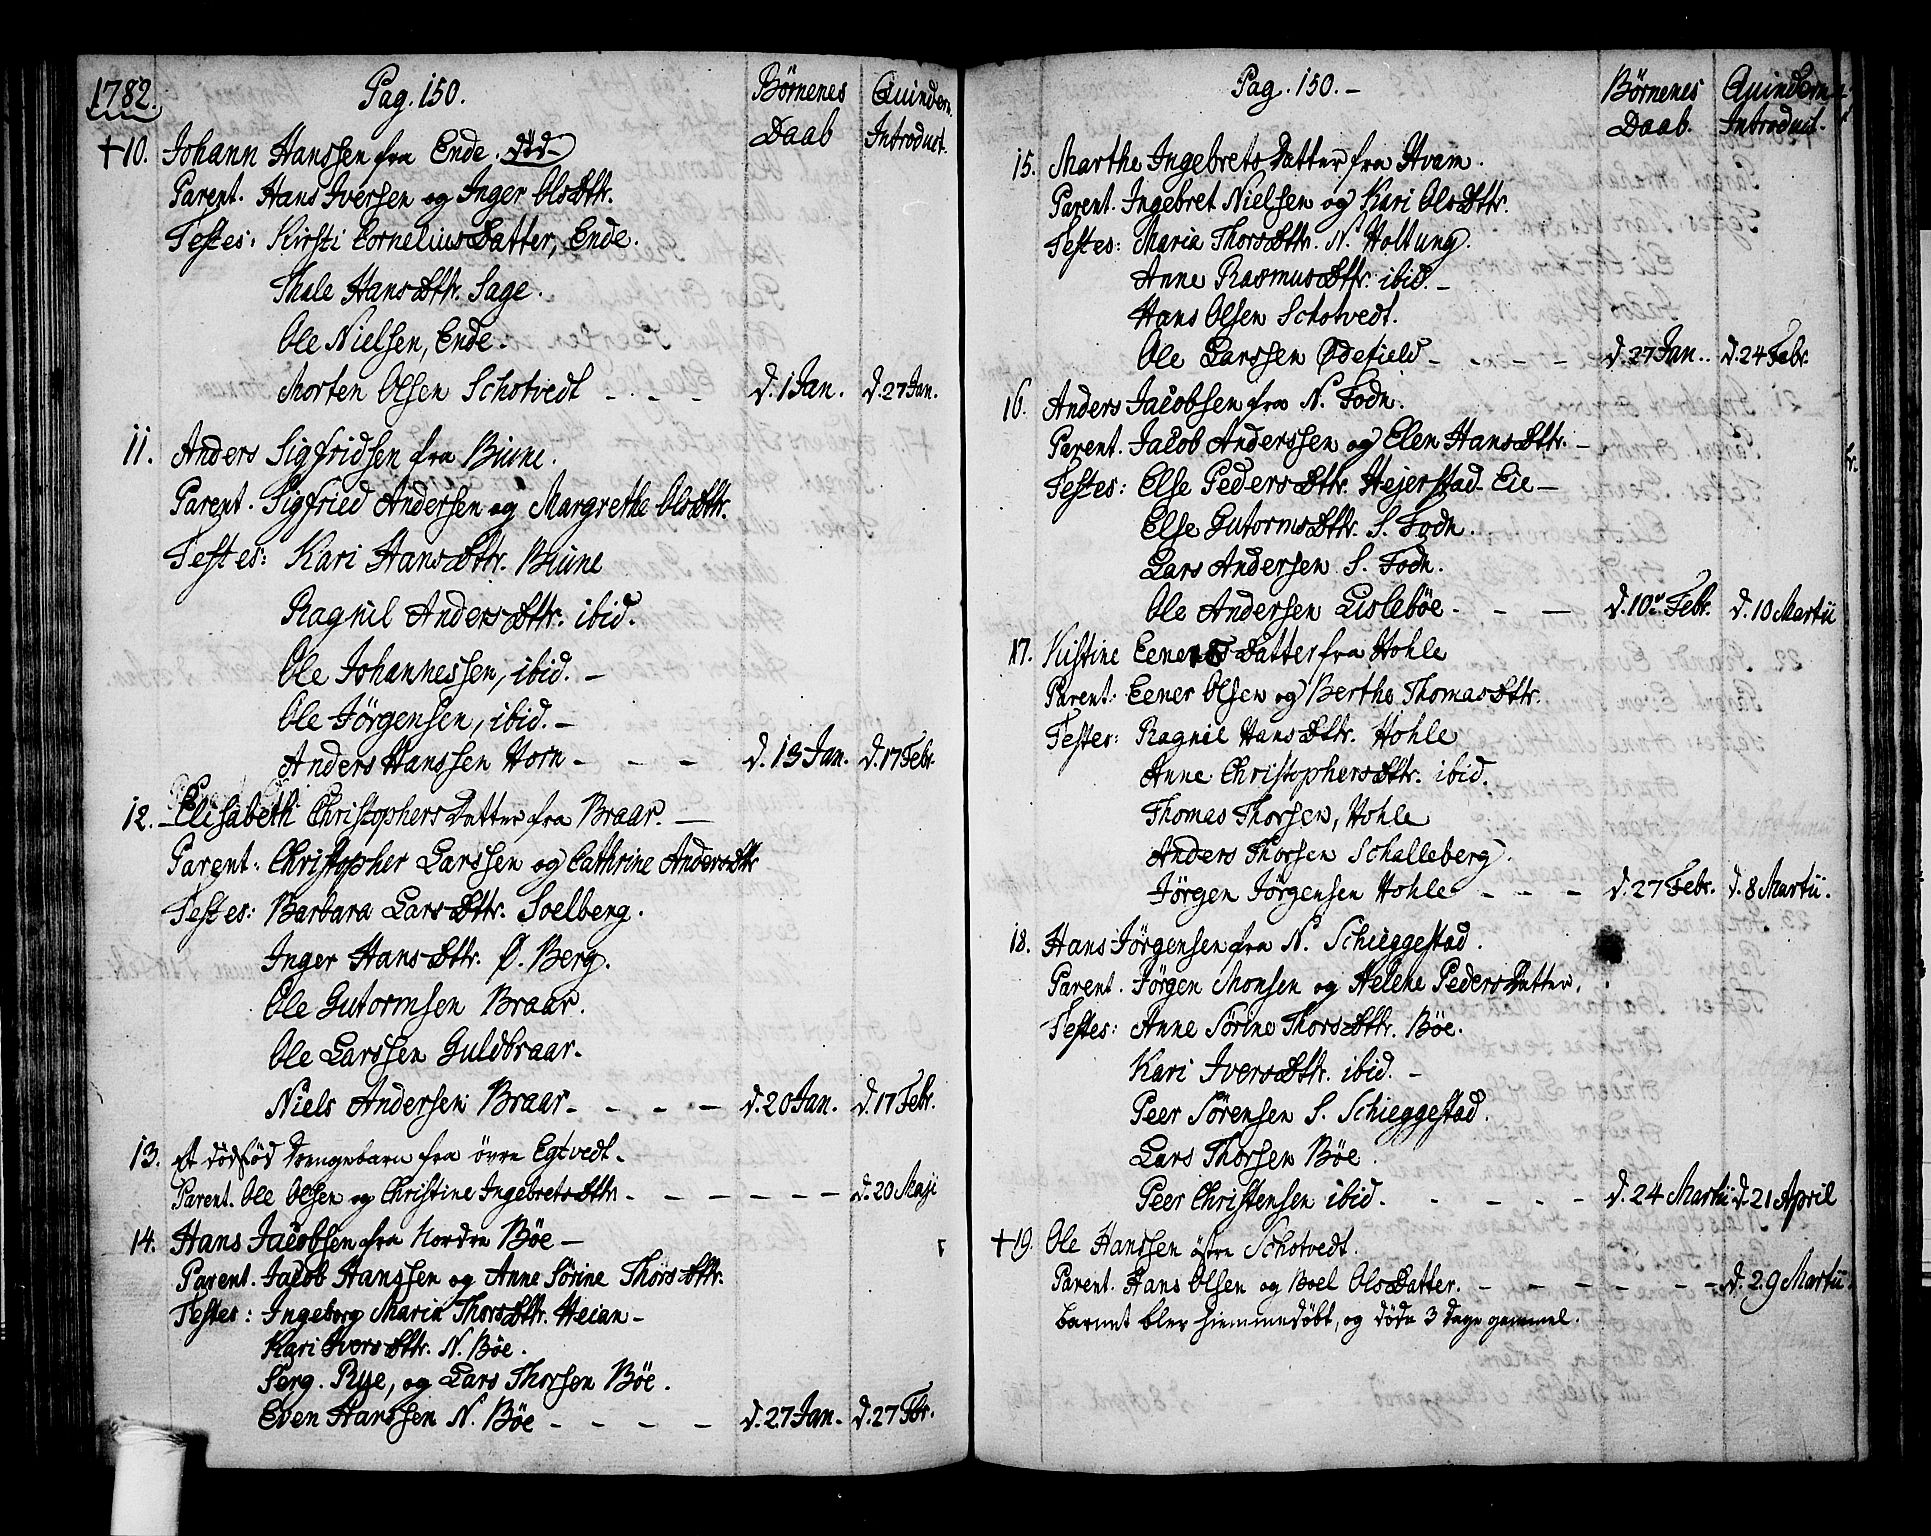 1782.
Pag. 150.
Børnenes Daab
Quindern. Introduct.
†10. Johann Hanssen fra Ende. død
Parent. Hans Iversen og Inger OlsDttr.
Testes: Kirsti CorneliusDatter, Ende.
Thale HansDttr. Sage.
Ole Nielsen, Ende.
Morten Olsen Schotvedt - - - d. 1 Jan. d. 27 Jan.
11. Anders Sigfridsen fra Biune.
Parent. Sigfried Andersen og Margrethe OlsDttr.
Testes: Kari HansDttr. Biune
Ragnil AndersDttr. ibid.
Ole Johannessen, ibid. -
Ole Jørgensen, ibid. -
Anders Hanssen Horn - - - d. 13 Jan. d. 17 Febr.
12. Elisabeth ChristophersDatter fra Braar. -
Parent. Christopher Larssen og Cathrine AndersDttr
Testes: Barbara LarsDttr. Soelberg.
Inger HansDttr. Ø. Berg.
Ole Gutormsen Braar.
Ole Larssen Guldbraar.
Niels Andersen Braar. - - - - d. 20 Jan. d. 17 Febr.
13. et dødfød Drengebarn fra øvre Egtvedt.
Parent. Ole Olsen og Christine IngebretsDttr. - - - - - - d. 20 Maji
14. Hans Jacobsen fra Nordre Bøe -
Parent. Jacob Hanssen og Anne Sørine ThorsDttr.
Testes: Ingeborg Maria ThorsDttr. Heian -
Kari IversDttr. N. Bøe.
Serg. Rye, og Lars Thorsen Bøe.
Even Hanssen N. Bøe - - - - d. 27 Jan. d. 27 Fbr.
Pag. 150. -
Børnenes Daab.
Quindernes Introduct.
15. Marthe IngebretsDatter fra Hvam.
Parent. Ingebret Nielsen og Kari OlsDttr.
Testes: Maria ThorsDttr. N. Holtung.
Anne RasmusDttr. ibid. -
Hans Olsen Schotvedt.
Ole Larssen Ødefield - - - - d. 27 Jan. d. 24 Febr.
16. Anders Jacobsen fra N. Fodn.
Parent. Jacob Anderssen og Elen HansDttr. -
Testes: Else PedersDttr. Hejerstad Eie -
Else GutormsDttr. S. Fodn.
Lars Andersen S. Fodn.
Ole Andersen Lislebøe - - - d. 10. Febr. d. 10 Martii
17. Kistine EenersDatter fra Hohle
Parent: Eener Olsen og Berthe ThomasDttr.
Testes: Ragnil HansDttr. Hohle
Anne ChristophersDttr. ibid.
Thomas Thorsen, Hohle
Anders Thorsen Schalleberg.
Jørgen Jørgensen Hohle - - - d. 27 Febr. d. 8 Martii.
18. Hans Jørgensen fra N. Schieggestad.
Parent. Jørgen Monsen og Helene PedersDatter.
Testes: Anne Sørine ThorsDttr. Bøe.
Kari IversDttr. ibid. -
Peer Sørensen S. Schieggestad.
Lars Thorsen Bøe.
Peer Christensen ibid. - - - - d. 24 Martii d. 21 April
†19. Ole Hanssen østre Schotvedt.
Parent. Hans Olsen og Boel OlsDatter. - - - - - - d. 29 Martii.
barnet blev hiemmedøbt, og døde 3 dage gammel.